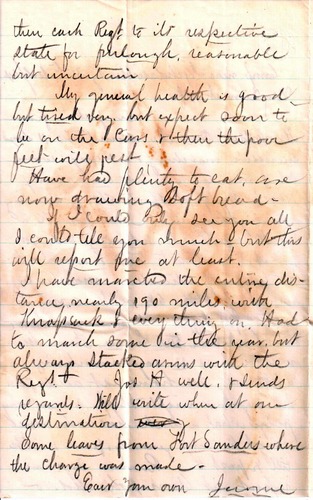 then each Regt to its respective
state for furlough, reasonable
but uncertain.
My general health is good -
but tired very. but expect soon to
be on the Cars & then the poor
feet will rest
Have had plenty to eat, are
now drawing Soft bread -
If I could only see you all
I could tell you much - but this
will report me at least.
I have marched the entire dis-
tance, nearly 190 miles, with
Knapsack & everything on. Had
to march some in the rear, but
always stacked arms with the
Regt Jos H well, & sends
regards. Will write when at our
destination
Some leaves from Fort Sanders where
the charge was made -
Ever Your own Jerome